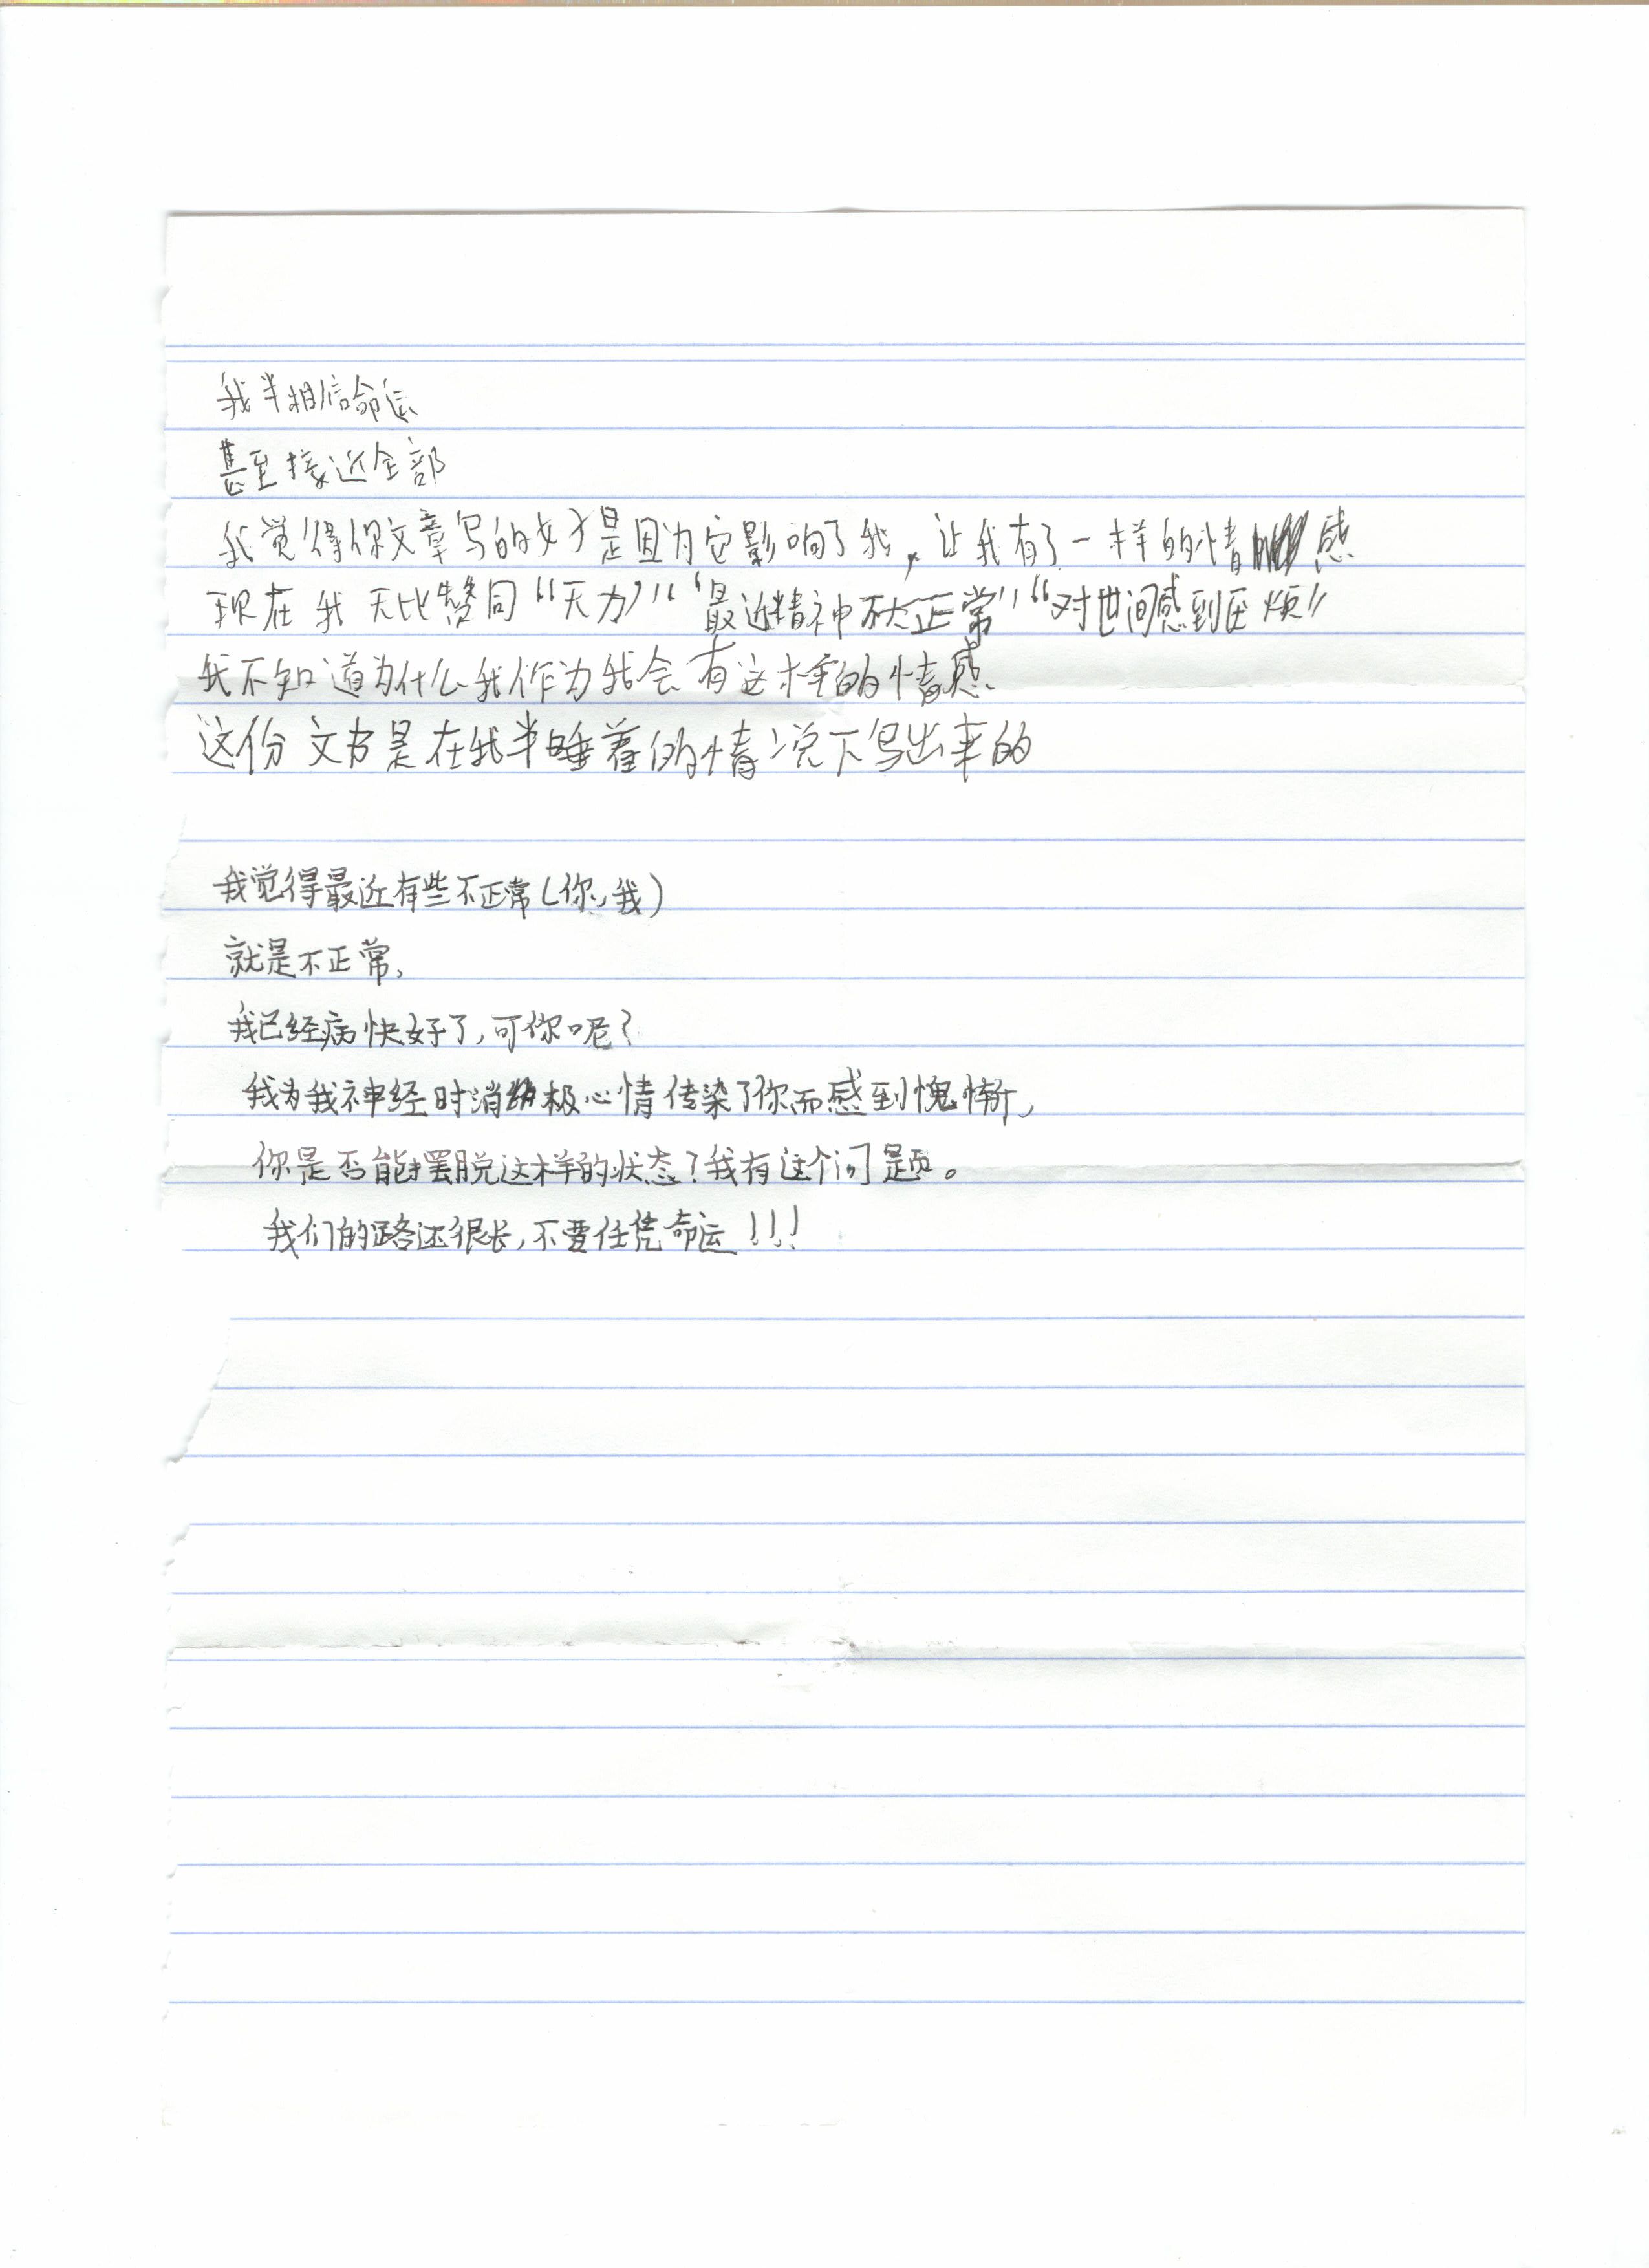 我半相信命运
甚至接近全部
我觉得你文章写的好是因为它影响了我,让我有了一样的情感
现在我无比赞同“无力”“最近精神不太正常”“对世间感到厌烦”
我不知道为什么我作为我会有这样的情感
这份文书是在我半睡着的情况下写出来的
我觉得最近有些不正常(你,我)
就是不正常,
我已经病快好了,可你呢?
我为我神经时消极心情传染了你而感到愧惭,
你是否能摆脱这样的状态?我有这个问题。
我们的路还很长,不要任凭命运!!!